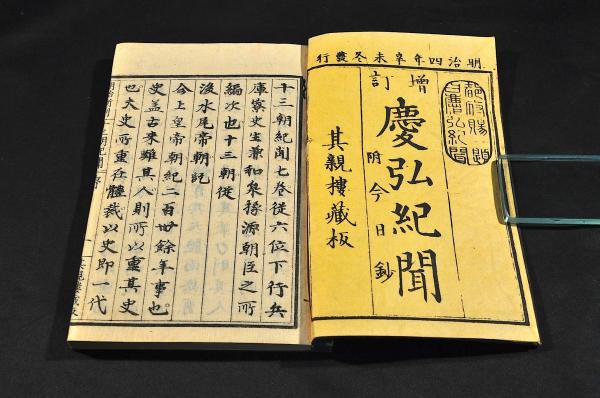 明治四年辛未冬發行
增訂
慶弘紀聞
附今日鈔
其親樓藏板
十三朝紀聞七卷從六位下行兵
庫寮史生兼和泉掾源朝臣之所
編次也十三朝從
後水尾帝朝訖
今上皇帝朝紀二百卅餘年事也
史盖古來難其人則所以重其史
也夫史所重在體裁以史即一代